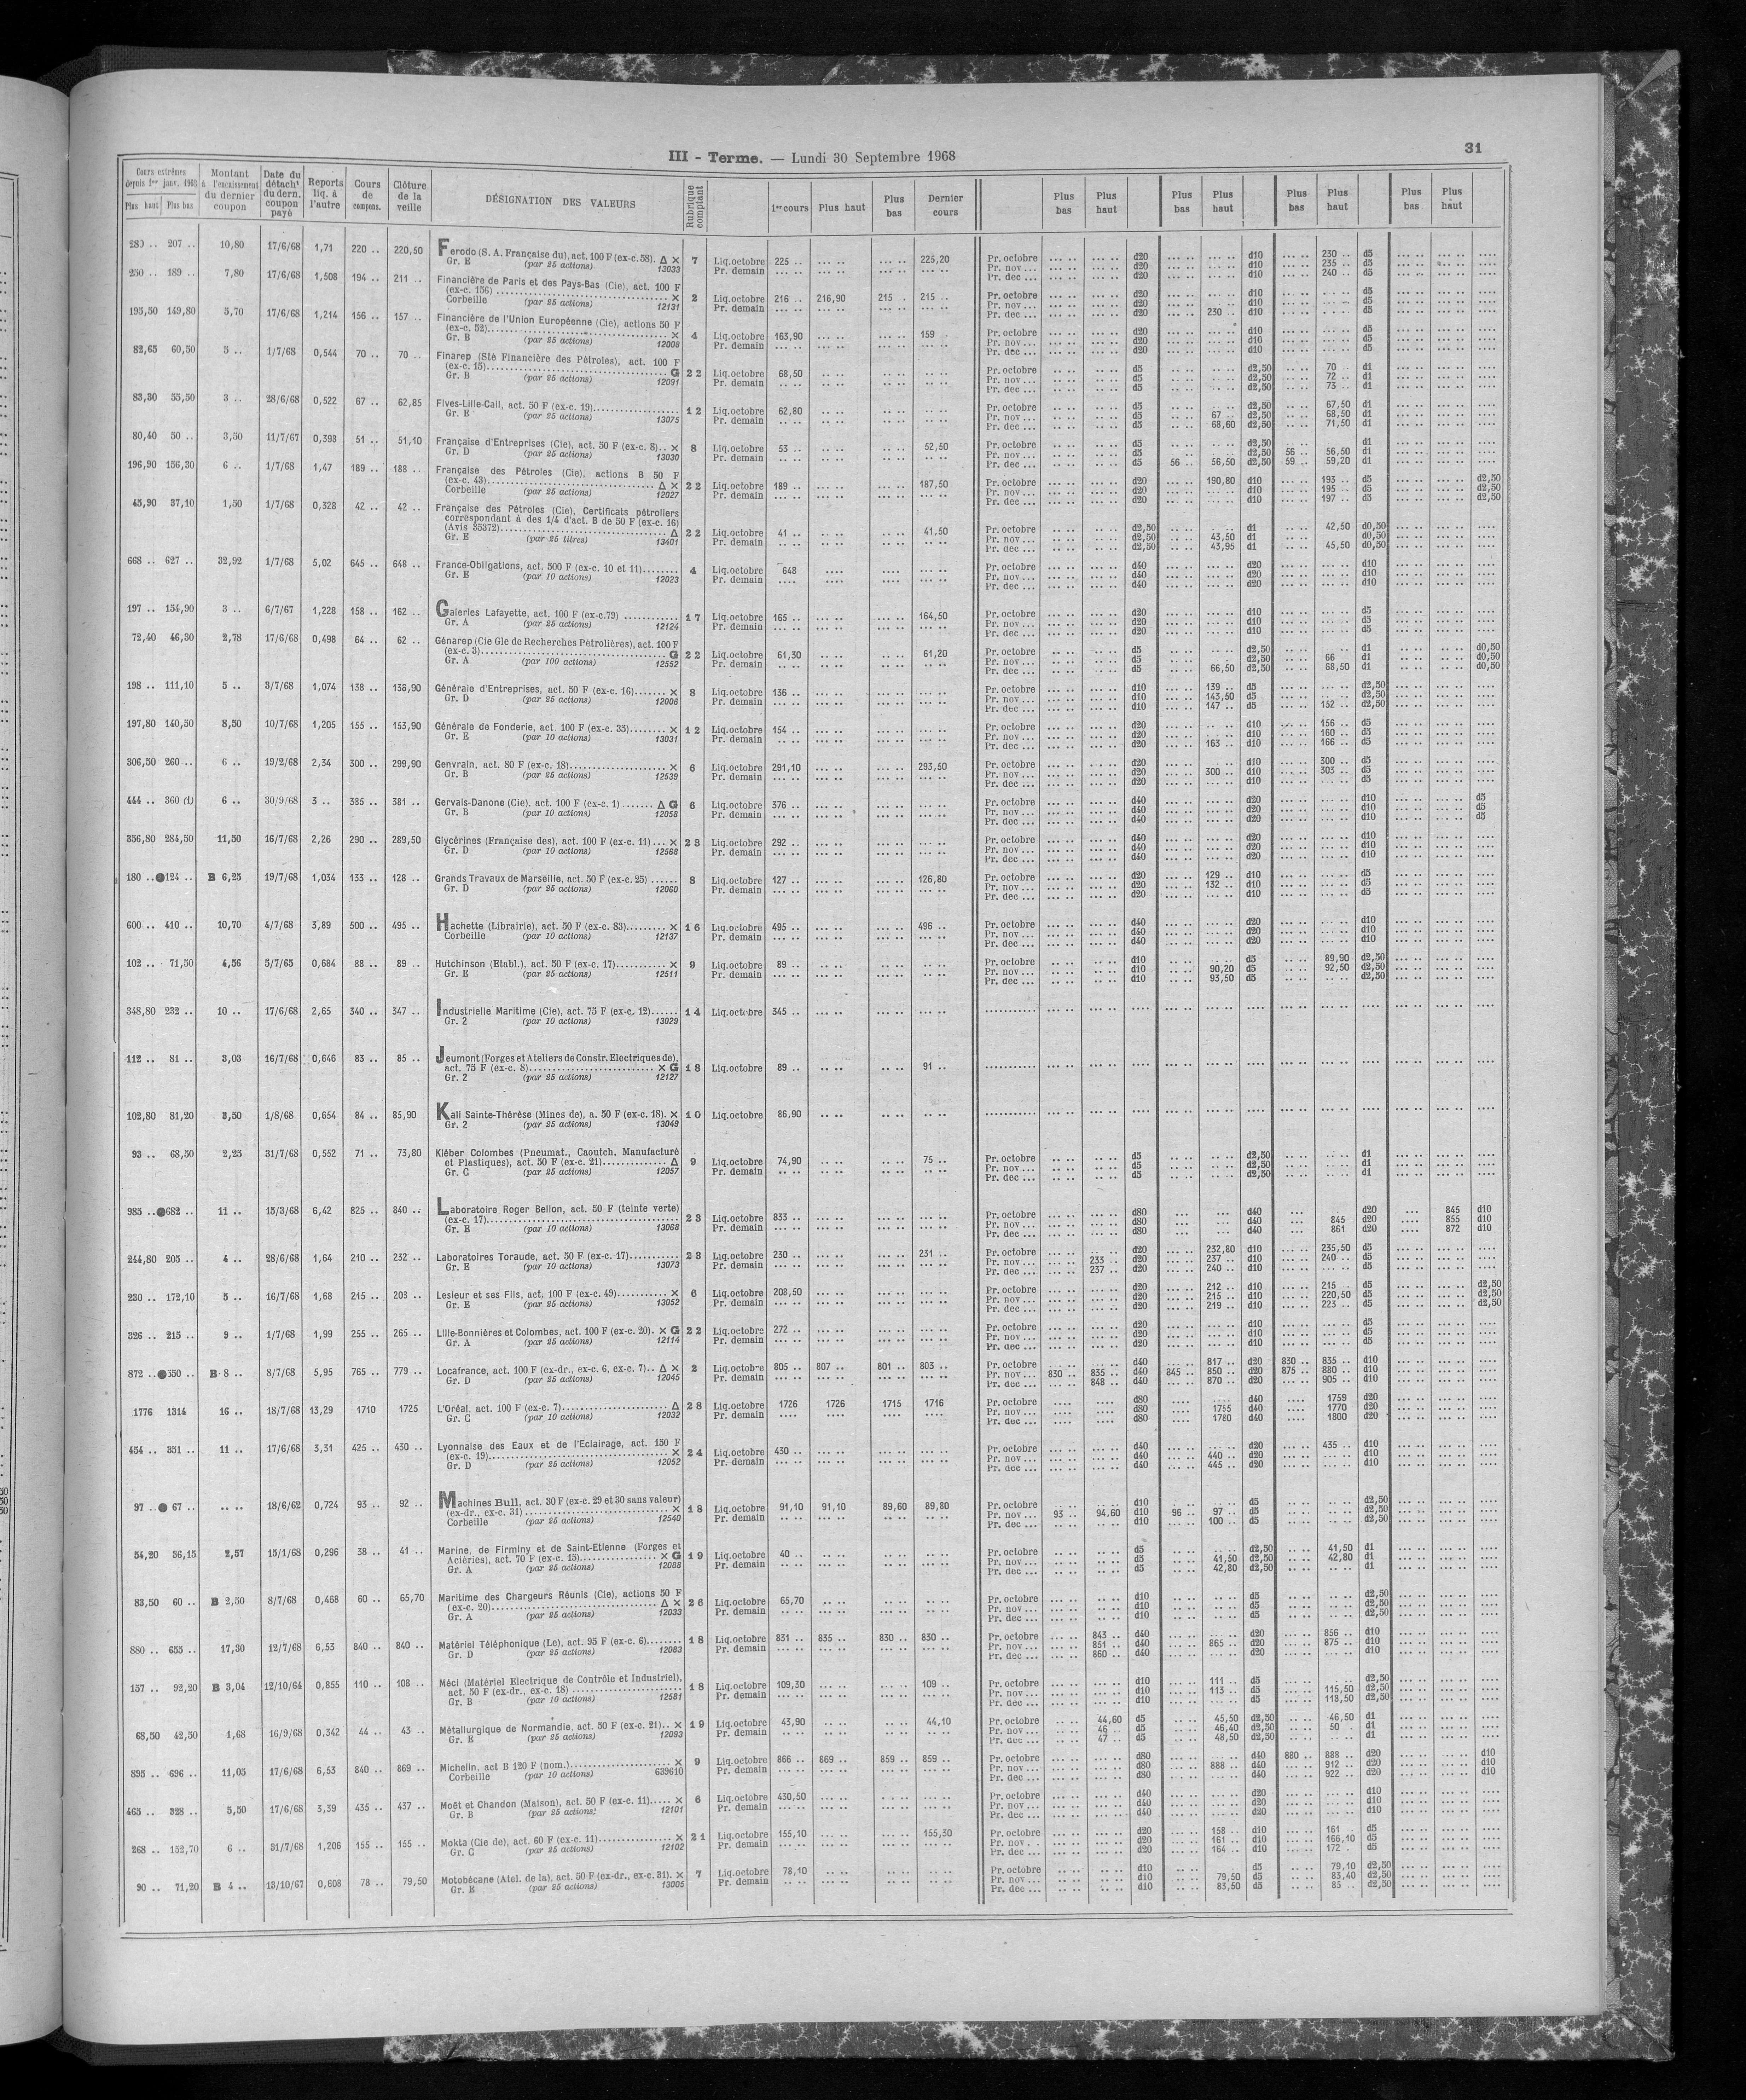 III - Terme. — Lundi 30 Septembre 1968
31
Cours extrêmes depuis 1er janv. 1968 Plus haut Plus bas
Montant à l'encaissement du dernier coupon
Date du détacht du dern. coupon payé
Reports liq. à l'autre
Cours de compens.
Clôture de la veille
DÉSIGNATION DES VALEURS
Rubrique comptant
1er cours Plus haut Plus bas Dernier cours
Plus bas Plus haut Plus bas Plus haut Plus bas Plus haut Plus bas Plus haut
207 .. 10,80 17/6/68 1,71 220 .. 220,50 Ferodo (S. A. Française du), act. 100 F (ex-c. 58). Δ × 7 Liq.octobre 225 .. 225,20 Pr. octobre d20 d10 230 .. d5
Gr. E (par 25 actions) 13033 Pr. demain Pr. nov ... d20 d10 235 .. d5
Pr. dec ... d20 d10 240 .. d5
250 .. 189 .. 7,80 17/6/68 1,508 194 .. 211 .. Financière de Paris et des Pays-Bas (Cie), act. 100 F
(ex-c. 156) × 2 Liq.octobre 216 .. 216,90 215 .. 215 .. Pr. octobre d20 d10 d5
Corbeille (par 25 actions) 12131 Pr. demain Pr. nov ... d20 d10 d5
Pr. dec ... d20 230 .. d10 d5
193,50 149,80 5,70 17/6/68 1,214 156 .. 157 .. Financière de l'Union Européenne (Cie), actions 50 F
(ex-c. 52) × 4 Liq.octobre 163,90 159 .. Pr. octobre d20 d10 d5
Gr. B (par 25 actions) 12008 Pr. demain Pr. nov ... d20 d10 d5
Pr. dec ... d20 d10 d5
82,65 60,50 5 .. 1/7/68 0,544 70 .. 70 .. Finarep (Sté Financière des Pétroles), act. 100 F
(ex-c. 15) G 22 Liq.octobre 68,50 Pr. octobre d5 d2,50 70 .. d1
Gr. B (par 25 actions) 12091 Pr. demain Pr. nov ... d5 d2,50 72 .. d1
Pr. dec ... d5 d2,50 73 .. d1
83,30 53,50 3 .. 28/6/68 0,522 67 .. 62,85 Fives-Lille-Cail, act. 50 F (ex-c. 19) 12 Liq.octobre 62,80 Pr. octobre d5 d2,50 67,50 d1
Gr. E (par 25 actions) 13075 Pr. demain Pr. nov ... d5 67 .. d2,50 68,50 d1
Pr. dec ... d5 68,60 d2,50 71,50 d1
80,40 50 .. 3,50 11/7/67 0,393 51 .. 51,10 Française d'Entreprises (Cie), act. 50 F (ex-c. 8).. × 8 Liq.octobre 53 .. 52,50 Pr. octobre d5 d2,50 d1
Gr. D (par 25 actions) 13030 Pr. demain Pr. nov ... d5 d2,50 56 .. 56,50 d1
Pr. dec ... d5 56 .. 56,50 d2,50 59 .. 59,20 d1
196,90 156,30 6 .. 1/7/68 1,47 189 .. 188 .. Française des Pétroles (Cie), actions B 50 F
(ex-c. 43) Δ × 22 Liq.octobre 189 .. 187,50 Pr. octobre d20 190,80 d10 193 .. d5 d2,50
Corbeille (par 25 actions) 12027 Pr. demain Pr. nov ... d20 d10 195 .. d5 d2,50
Pr. dec ... d20 d10 197 .. d5 d2,50
45,90 37,10 1,50 1/7/68 0,328 42 .. 42 .. Française des Pétroles (Cie), Certificats pétroliers
correspondant à des 1/4 d'act. B de 50 F (ex-c. 16)
(Avis 35372) Δ 22 Liq.octobre 41 .. 41,50 Pr. octobre d2,50 d1 42,50 d0,50
Gr. E (par 25 titres) 13401 Pr. demain Pr. nov ... d2,50 43,50 d1 d0,50
Pr. dec ... d2,50 43,95 d1 45,50 d0,50
668 .. 627 .. 32,92 1/7/68 5,02 645 .. 648 .. France-Obligations, act. 500 F (ex-c. 10 et 11) 4 Liq.octobre 648 Pr. octobre d40 d20 d10
Gr. E (par 10 actions) 12023 Pr. demain Pr. nov ... d40 d20 d10
Pr. dec ... d40 d20 d10
197 .. 154,90 3 .. 6/7/67 1,228 158 .. 162 .. Galeries Lafayette, act. 100 F (ex-c.79) 17 Liq.octobre 165 .. 164,50 Pr. octobre d20 d10 d5
Gr. A (par 25 actions) 12124 Pr. demain Pr. nov ... d20 d10 d5
Pr. dec ... d20 d10 d5
72,40 46,30 2,78 17/6/68 0,498 64 .. 62 .. Génarep (Cie Gle de Recherches Pétrolières), act. 100 F
(ex-c. 3) G 22 Liq.octobre 61,30 61,20 Pr. octobre d5 d2,50 d1 d0,50
Gr. A (par 100 actions) 12552 Pr. demain Pr. nov ... d5 d2,50 66 d1 d0,50
Pr. dec ... d5 66,50 d2,50 68,50 d1 d0,50
198 .. 111,10 5 .. 3/7/68 1,074 138 .. 136,90 Générale d'Entreprises, act. 50 F (ex-c. 16) × 8 Liq.octobre 136 .. Pr. octobre d10 139 .. d5 d2,50
Gr. D (par 25 actions) 12008 Pr. demain Pr. nov ... d10 143,50 d5 d2,50
Pr. dec ... d10 147 .. d5 152 .. d2,50
197,80 140,50 8,50 10/7/68 1,205 155 .. 153,90 Générale de Fonderie, act. 100 F (ex-c. 35) × 12 Liq.octobre 154 .. Pr. octobre d20 d10 156 .. d5
Gr. E (par 10 actions) 13031 Pr. demain Pr. nov ... d20 d10 160 .. d5
Pr. dec ... d20 163 .. d10 166 .. d5
306,50 260 .. 6 .. 19/2/68 2,34 300 .. 299,90 Genvrain, act. 80 F (ex-c. 18) × 6 Liq.octobre 291,10 293,50 Pr. octobre d20 d10 300 .. d5
Gr. B (par 25 actions) 12539 Pr. demain Pr. nov ... d20 300 .. d10 303 .. d5
Pr. dec ... d20 d10 d5
444 .. 360 (1) 6 .. 30/9/68 3 .. 385 .. 381 .. Gervais-Danone (Cie), act. 100 F (ex-c. 1) Δ G 6 Liq.octobre 376 .. Pr. octobre d40 d20 d10 d5
Gr. B (par 10 actions) 12058 Pr. demain Pr. nov ... d40 d20 d10 d5
Pr. dec ... d40 d20 d10 d5
336,80 284,50 11,50 16/7/68 2,26 290 .. 289,50 Glycérines (Française des), act. 100 F (ex-c. 11) × 23 Liq.octobre 292 .. Pr. octobre d40 d20 d10
Gr. D (par 10 actions) 12568 Pr. demain Pr. nov ... d40 d20 d10
Pr. dec ... d40 d20 d10
180 .. ●124 .. B 6,25 19/7/68 1,034 133 .. 128 .. Grands Travaux de Marseille, act. 50 F (ex-c. 25) 8 Liq.octobre 127 .. 126,80 Pr. octobre d20 129 .. d10 d5
Gr. D (par 25 actions) 12060 Pr. demain Pr. nov ... d20 132 .. d10 d5
Pr. dec ... d20 d10 d5
600 .. 410 .. 10,70 4/7/68 3,89 500 .. 495 .. Hachette (Librairie), act. 50 F (ex-c. 83) × 16 Liq.octobre 495 .. 496 .. Pr. octobre d40 d20 d10
Corbeille (par 10 actions) 12137 Pr. demain Pr. nov ... d40 d20 d10
Pr. dec ... d40 d20 d10
102 .. 71,50 4,56 5/7/65 0,684 88 .. 89 .. Hutchinson (Etabl.), act. 50 F (ex-c. 17) × 9 Liq.octobre 89 .. Pr. octobre d10 d5 89,90 d2,50
Gr. E (par 25 actions) 12511 Pr. demain Pr. nov ... d10 90,20 d5 92,50 d2,50
Pr. dec ... d10 93,50 d5 d2,50
348,80 232 .. 10 .. 17/6/68 2,65 340 .. 347 .. Industrielle Maritime (Cie), act. 75 F (ex-c. 12) 14 Liq.octobre 345 ..
Gr. 2 (par 10 actions) 13029
112 .. 81 .. 3,03 16/7/68 0,646 83 .. 85 .. Jeumont (Forges et Ateliers de Constr. Electriques de),
act. 75 F (ex-c. 8) × G 18 Liq.octobre 89 .. 91 ..
Gr. 2 (par 25 actions) 12127
102,80 81,20 3,50 1/8/68 0,654 84 .. 85,90 Kali Sainte-Thérèse (Mines de), a. 50 F (ex-c. 18). × 10 Liq.octobre 86,90
Gr. 2 (par 25 actions) 13049
93 .. 68,50 2,25 31/7/68 0,552 71 .. 73,80 Kléber Colombes (Pneumat., Caoutch. Manufacturé
et Plastiques), act. 50 F (ex-c. 21) Δ 9 Liq.octobre 74,90 75 .. Pr. octobre d5 d2,50 d1
Gr. C (par 25 actions) 12057 Pr. demain Pr. nov ... d5 d2,50 d1
Pr. dec ... d5 d2,50 d1
985 .. ●682 .. 11 .. 15/3/68 6,42 825 .. 840 .. Laboratoire Roger Bellon, act. 50 F (teinte verte)
(ex-c. 17) 23 Liq.octobre 833 .. Pr. octobre d80 d40 d20 845 d10
Gr. E (par 10 actions) 13068 Pr. demain Pr. nov ... d80 d40 845 d20 855 d10
Pr. dec ... d80 d40 861 d20 872 d10
244,80 205 .. 4 .. 28/6/68 1,64 210 .. 232 .. Laboratoires Toraude, act. 50 F (ex-c. 17) 28 Liq.octobre 230 .. 231 .. Pr. octobre d20 232,80 d10 235,50 d5
Gr. E (par 10 actions) 13073 Pr. demain Pr. nov ... 233 .. d20 237 .. d10 240 .. d5
Pr. dec ... 237 .. d20 240 .. d10 d5
230 .. 172,10 5 .. 16/7/68 1,68 215 .. 203 .. Lesieur et ses Fils, act. 100 F (ex-c. 49) × 6 Liq.octobre 208,50 Pr. octobre d20 212 .. d10 215 .. d5 d2,50
Gr. E (par 25 actions) 13052 Pr. demain Pr. nov ... d20 215 .. d10 220,50 d5 d2,50
Pr. dec ... d20 219 .. d10 223 .. d5 d2,50
326 .. 215 .. 9 .. 1/7/68 1,99 255 .. 265 .. Lille-Bonnières et Colombes, act. 100 F (ex-c. 20). × G 22 Liq.octobre 272 .. Pr. octobre d20 d10 d5
Gr. A (par 25 actions) 12114 Pr. demain Pr. nov ... d20 d10 d5
Pr. dec ... d20 d10 d5
872 .. ●550 .. B 8 .. 8/7/68 5,95 765 .. 779 .. Locafrance, act. 100 F (ex-dr., ex-c. 6, ex-c. 7).. Δ × 2 Liq.octobre 805 .. 807 .. 801 .. 803 .. Pr. octobre d40 817 .. d20 830 .. 835 .. d10
Gr. D (par 25 actions) 12045 Pr. demain Pr. nov ... 830 .. 835 .. d40 845 .. 850 .. d20 875 .. 880 .. d10
Pr. dec ... 848 .. d40 870 .. d20 905 .. d10
1776 1314 16 .. 18/7/68 13,29 1710 1725 L'Oréal, act. 100 F (ex-c. 7) Δ 28 Liq.octobre 1726 1726 1715 1716 Pr. octobre d80 d40 1759 d20
Gr. C (par 10 actions) 12032 Pr. demain Pr. nov ... d80 1755 d40 1770 d20
Pr. dec ... d80 1780 d40 1800 d20
454 .. 331 .. 11 .. 17/6/68 3,31 425 .. 430 .. Lyonnaise des Eaux et de l'Eclairage, act. 150 F
(ex-c. 19) × 24 Liq.octobre 430 .. Pr. octobre d40 d20 435 .. d10
Gr. D (par 25 actions) 12052 Pr. demain Pr. nov ... d40 440 .. d20 d10
Pr. dec ... d40 445 .. d20 d10
97 .. ● 67 .. 18/6/62 0,724 93 .. 92 .. Machines Bull, act. 30 F (ex-c. 29 et 30 sans valeur)
(ex-dr., ex-c. 31) × 18 Liq.octobre 91,10 91,10 89,60 89,80 Pr. octobre d10 d5 d2,50
Corbeille (par 25 actions) 12540 Pr. demain Pr. nov ... 93 .. 94,60 d10 96 .. 97 .. d5 d2,50
Pr. dec ... d10 100 .. d5 d2,50
54,20 36,15 2,57 15/1/68 0,296 38 .. 41 .. Marine, de Firminy et de Saint-Etienne (Forges et
Aciéries), act. 70 F (ex-c. 15) × G 19 Liq.octobre 40 .. Pr. octobre d5 d2,50 41,50 d1
Gr. A (par 25 actions) 12088 Pr. demain Pr. nov ... d5 41,50 d2,50 42,80 d1
Pr. dec ... d5 42,80 d2,50 d1
83,50 60 .. B 2,50 8/7/68 0,468 60 .. 65,70 Maritime des Chargeurs Réunis (Cie), actions 50 F
(ex-c. 20) Δ × 26 Liq.octobre 65,70 Pr. octobre d10 d5 d2,50
Gr. A (par 25 actions) 12033 Pr. demain Pr. nov ... d10 d5 d2,50
Pr. dec ... d10 d5 d2,50
880 .. 655 .. 17,30 12/7/68 6,53 840 .. 840 .. Matériel Téléphonique (Le), act. 95 F (ex-c. 6) 18 Liq.octobre 831 .. 835 .. 830 .. 830 .. Pr. octobre 843 .. d40 d20 856 .. d10
Gr. D (par 25 actions) 12083 Pr. demain Pr. nov ... 851 .. d40 865 .. d20 875 .. d10
Pr. dec ... 860 .. d40 d20 d10
157 .. 92,20 B 3,04 12/10/64 0,855 110 .. 108 .. Méci (Matériel Electrique de Contrôle et Industriel),
act. 50 F (ex-dr., ex-c. 18) 18 Liq.octobre 109,30 109 .. Pr. octobre d10 111 .. d5 d2,50
Gr. B (par 10 actions) 12581 Pr. demain Pr. nov ... d10 113 .. d5 115,50 d2,50
Pr. dec ... d10 d5 118,50 d2,50
68,50 42,50 1,68 16/9/68 0,342 44 .. 43 .. Métallurgique de Normandie, act. 50 F (ex-c. 21).. × 19 Liq.octobre 43,90 44,10 Pr. octobre 44,60 d5 45,50 d2,50 46,50 d1
Gr. E (par 25 actions) 12093 Pr. demain Pr. nov ... 46 .. d5 46,40 d2,50 50 .. d1
Pr. dec ... 47 .. d5 48,50 d2,50 d1
895 .. 696 .. 11,05 17/6/68 6,53 840 .. 869 .. Michelin, act B 120 F (nom.) × 9 Liq.octobre 866 .. 869 .. 859 .. 859 .. Pr. octobre d80 d40 880 .. 888 .. d20 d10
Corbeille (par 10 actions) 639610 Pr. demain Pr. nov ... d80 888 .. d40 912 .. d20 d10
Pr. dec ... d80 d40 922 .. d20 d10
465 .. 328 .. 5,50 17/6/68 3,39 435 .. 437 .. Moët et Chandon (Maison), act. 50 F (ex-c. 11) × 6 Liq.octobre 430,50 Pr. octobre d40 d20 d10
Gr. B (par 25 actions) 12101 Pr. demain Pr. nov ... d40 d20 d10
Pr. dec ... d40 d20 d10
268 .. 152,70 6 .. 31/7/68 1,206 155 .. 155 .. Mokta (Cie de), act. 60 F (ex-c. 11) × 21 Liq.octobre 155,10 155,30 Pr. octobre d20 158 .. d10 161 .. d5
Gr. C (par 25 actions) 12102 Pr. demain Pr. nov ... d20 161 .. d10 166,10 d5
Pr. dec ... d20 164 .. d10 172 .. d5
90 .. 71,20 B 4 .. 13/10/67 0,608 78 .. 79,50 Motobécane (Atel. de la), act. 50 F (ex-dr., ex-c. 31). × 7 Liq.octobre 78,10 Pr. octobre d10 d5 79,10 d2,50
Gr. E (par 25 actions) 13005 Pr. demain Pr. nov ... d10 79,50 d5 83,40 d2,50
Pr. dec ... d10 83,50 d5 85 .. d2,50